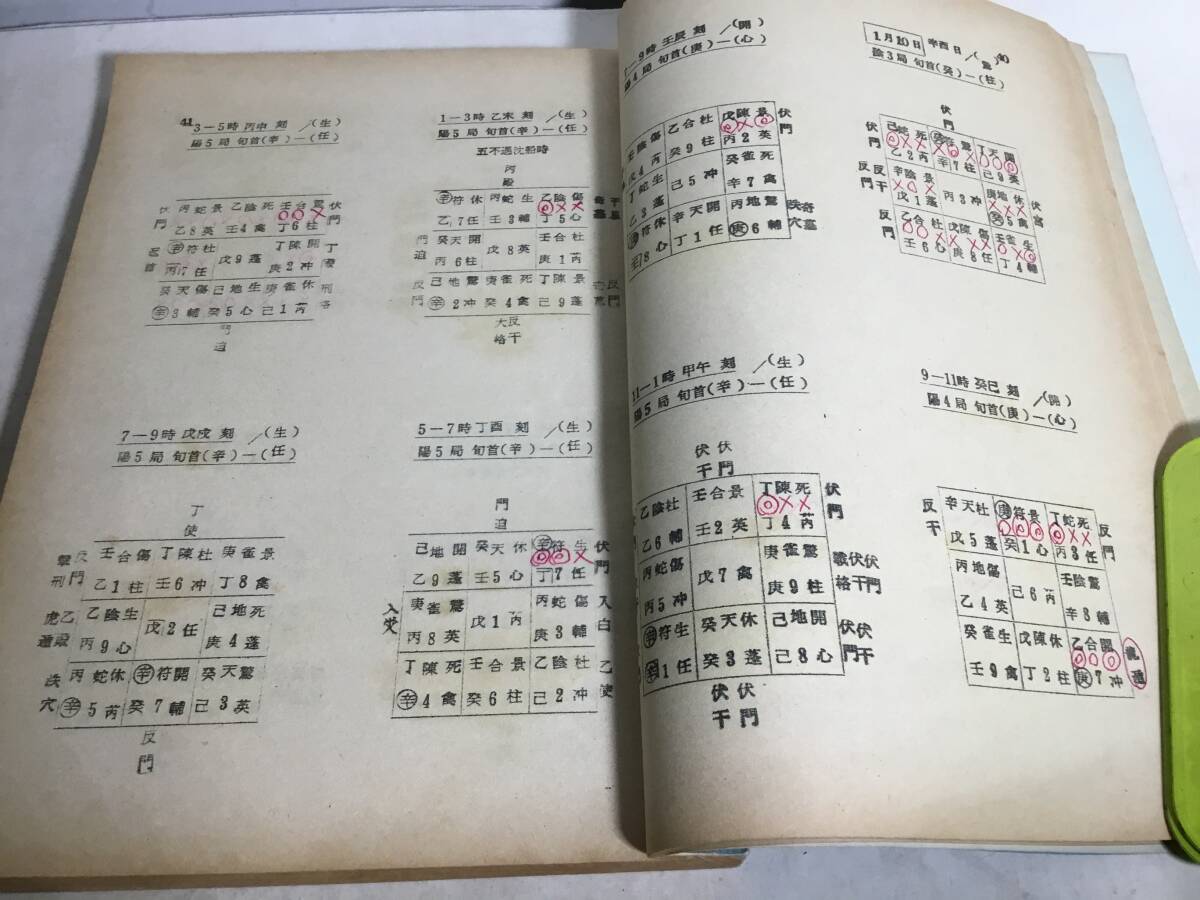 40
1月10日 辛酉日/(驚)
陰3局 旬首(癸)—(柱)
伏門
己蛇死 癸符驚 丁天開
乙2芮 辛7柱 己9英
辛陰景 丙3冲 庚地休
癸5禽
乙合杜 戊陳傷 壬雀生
壬6心 庚8任 丁4輔
伏門
反門
反干
反門
伏宮
7—9時 壬辰刻 /(開)
陽4局 旬首(庚)—(心)
壬陰傷 乙合杜 戊陳景
戊4芮 癸9柱 丙2英
丁蛇生 己5冲 癸雀死
乙3蓬 辛7禽
符休 辛天開 丙地驚
壬8心 丁1任 庚6輔
伏門
奇墓
跌穴
9—11時 癸巳刻 /(開)
陽4局 旬首(庚)—(心)
辛天杜 庚符景 丁蛇死
戊5蓬 癸1心 丙3任
丙地傷 己6芮 壬陰驚
乙4英 辛8輔
癸雀生 戊陳休 乙合開
壬9禽 丁2柱 庚7冲
反干
反門
11—1時 甲午刻 /(生)
陽5局 旬首(辛)—(任)
伏干 伏門
乙陰杜 壬合景 丁陳死
乙6輔 壬2英 丁4芮
丙蛇傷 戊7禽 庚雀驚
丙5冲 庚9柱
辛符生 癸天休 己地開
辛1任 癸3蓬 己8心
伏門
戰格 伏干 伏門
伏門 伏干
伏干 伏門
41
1—3時 乙未刻 /(生)
陽5局 旬首(辛)—(任)
五不遇沈船時
丙殿
辛符休 丙蛇生 乙陰傷
乙7任 壬3輔 丁5心
癸天開 戊8英 壬合杜
丙6柱 庚1芮
己地驚 庚雀死 丁陳景
辛2冲 癸4禽 己9蓬
門迫
反門
反門
大格 反干
3—5時 丙申刻 /(生)
陽5局 旬首(辛)—(任)
丙蛇景 乙陰死 壬合驚
乙8英 壬4禽 丁6柱
辛符杜 戊9蓬 丁陳開
丙7任 庚2冲
癸天傷 己地生 庚雀休
辛3輔 癸5心 己1芮
伏門
伏門
刑格
門迫
5—7時 丁酉刻 /(生)
陽5局 旬首(辛)—(任)
門迫
己地開 癸天休 辛符生
乙9蓬 壬5心 丁7任
庚雀驚 戊1芮 丙蛇傷
丙8英 庚3輔
丁陳死 壬合景 乙陰杜
辛4禽 癸6柱 己2冲
伏門
入白
乙使
7—9時 戊戌刻 /(生)
陽5局 旬首(辛)—(任)
丁使
壬合傷 丁陳杜 庚雀景
乙1柱 壬6冲 丁8禽
乙陰生 戊2任 己地死
丙9心 庚4蓬
丙蛇休 辛符開 癸天驚
辛5芮 癸7輔 己3英
撃刑 反門
跌穴
反門